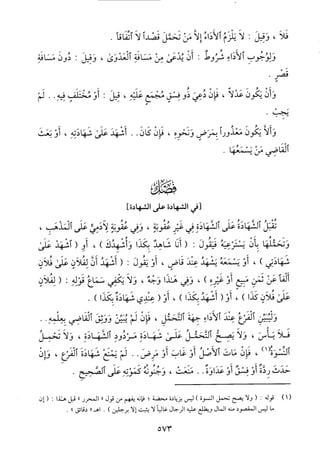 فَلاَ ، وَقِيلَ : لاَ يَلْزَمُ ٱلأَدَاءُ إِلاَّ مَنْ تَحَمَّلَ قَصْداً لاَ ٱتِّفَاقاً .
وَلِوُجُوبِ ٱلأَدَاءِ شُرُوطٌ : أَنْ يُدْعَىٰ مِنْ مَسَافَةِ ٱلْعَدْوَىٰ ، وَقِيلَ : دُونَ مَسَافَةِ
قَصْرٍ .
وَأَنْ يَكُونَ عَدْلاً ، فَإِنْ دُعِيَ ذُو فِسْقٍ مُجْمَعٍ عَلَيْهِ ، قِيلَ : أَوْ مُخْتَلَفٍ فِيهِ . . لَمْ
يَجِبْ .
وَأَلاَّ يَكُونَ مَعْذُوراً بِمَرَضٍ وَنَحْوِهِ ، فَإِنْ كَانَ . . أَشْهَدَ عَلَىٰ شَهَادَتِهِ ، أَوْ بَعَثَ
ٱلْقَاضِي مَنْ يَسْمَعُهَا .
فَصْلٌ
[في الشهادة على الشهادة]
تُقْبَلُ ٱلشَّهَادَةُ عَلَى ٱلشَّهَادَةِ فِي غَيْرِ عُقُوبَةٍ ، وَفِي عُقُوبَةٍ لآدَمِيٍّ عَلَى ٱلْمَذْهَبِ ،
وَتَحَمُّلُهَا بِأَنْ يَسْتَرْعِيَهُ فَيَقُولَ : ( أَنَا شَاهِدٌ بِكَذَا وَأُشْهِدُكَ ) ، أَوِ ( ٱشْهَدْ عَلَىٰ
شَهَادَتِي ) ، أَوْ يَسْمَعَهُ يَشْهَدُ عِنْدَ قَاضٍ ، أَوْ يَقُولُ : ( أَشْهَدُ أَنَّ لِفُلاَنٍ عَلَىٰ فُلاَنٍ
أَلْفاً عَنْ ثَمَنِ مَبِيعٍ أَوْ غَيْرِهِ ) ، وَفِي هَـٰذَا وَجْهٌ ، وَلاَ يَكْفِي سَمَاعُ قَوْلِهِ : ( لِفُلاَنٍ
عَلَىٰ فُلاَنٍ كَذَا ) ، أَوْ ( أَشْهَدُ بِكَذَا ) ، أَوْ ( عِنْدِي شَهَادَةٌ بِكَذَا ) .
وَلْيُبَيِّنِ ٱلْفَرْعُ عِنْدَ ٱلأَدَاءِ جِهَةَ ٱلتَّحَمُّلِ ، فَإِنْ لَمْ يُبَيِّنْ وَوَثِقَ ٱلْقَاضِي بِعِلْمِهِ . .
فَلاَ بَأْسَ ، وَلاَ يَصِحُّ ٱلتَّحَمُّلُ عَلَىٰ شَهَادَةِ مَرْدُودِ ٱلشَّهَادَةِ ، وَلاَ تَحَمُّلُ
ٱلنِّسْوَةِ(١) ، فَإِنْ مَاتَ ٱلأَصْلُ أَوْ غَابَ أَوْ مَرِضَ . . لَمْ يَمْنَعْ شَهَادَةَ ٱلْفَرْعِ ، وَإِنْ
حَدَثَ رِدَّةٌ أَوْ فِسْقٌ أَوْ عَدَاوَةٌ . . مَنَعَتْ ، وَجُنُونُهُ كَمَوْتِهِ عَلَى ٱلصَّحِيحِ .
(١) قوله : ( ولا يصح تحمل النسوة ) ليس بزيادة محضة ؛ فإنه يفهم من قول « المحرر » قبل هـٰذا : ( إن
ما ليس المقصود منه المال ويطلع عليه الرجال غالباً لا يثبت إلا برجلين ) . اهـ « دقائق » .
٥٧٣